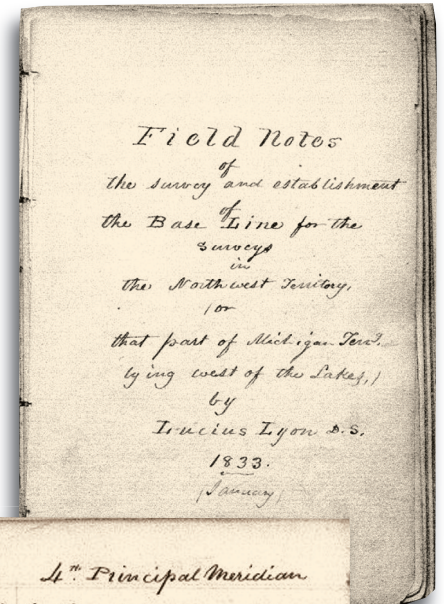 Field Notes
of
the survey and establishment
of
the Base Line for the
Surveys
in
the Northwest Territory,
(or
that part of Michigan Terr.
lying west of the Lakes,)
by
Lucius Lyon D.S.
1833.
(January)
4th. Principal Meridian